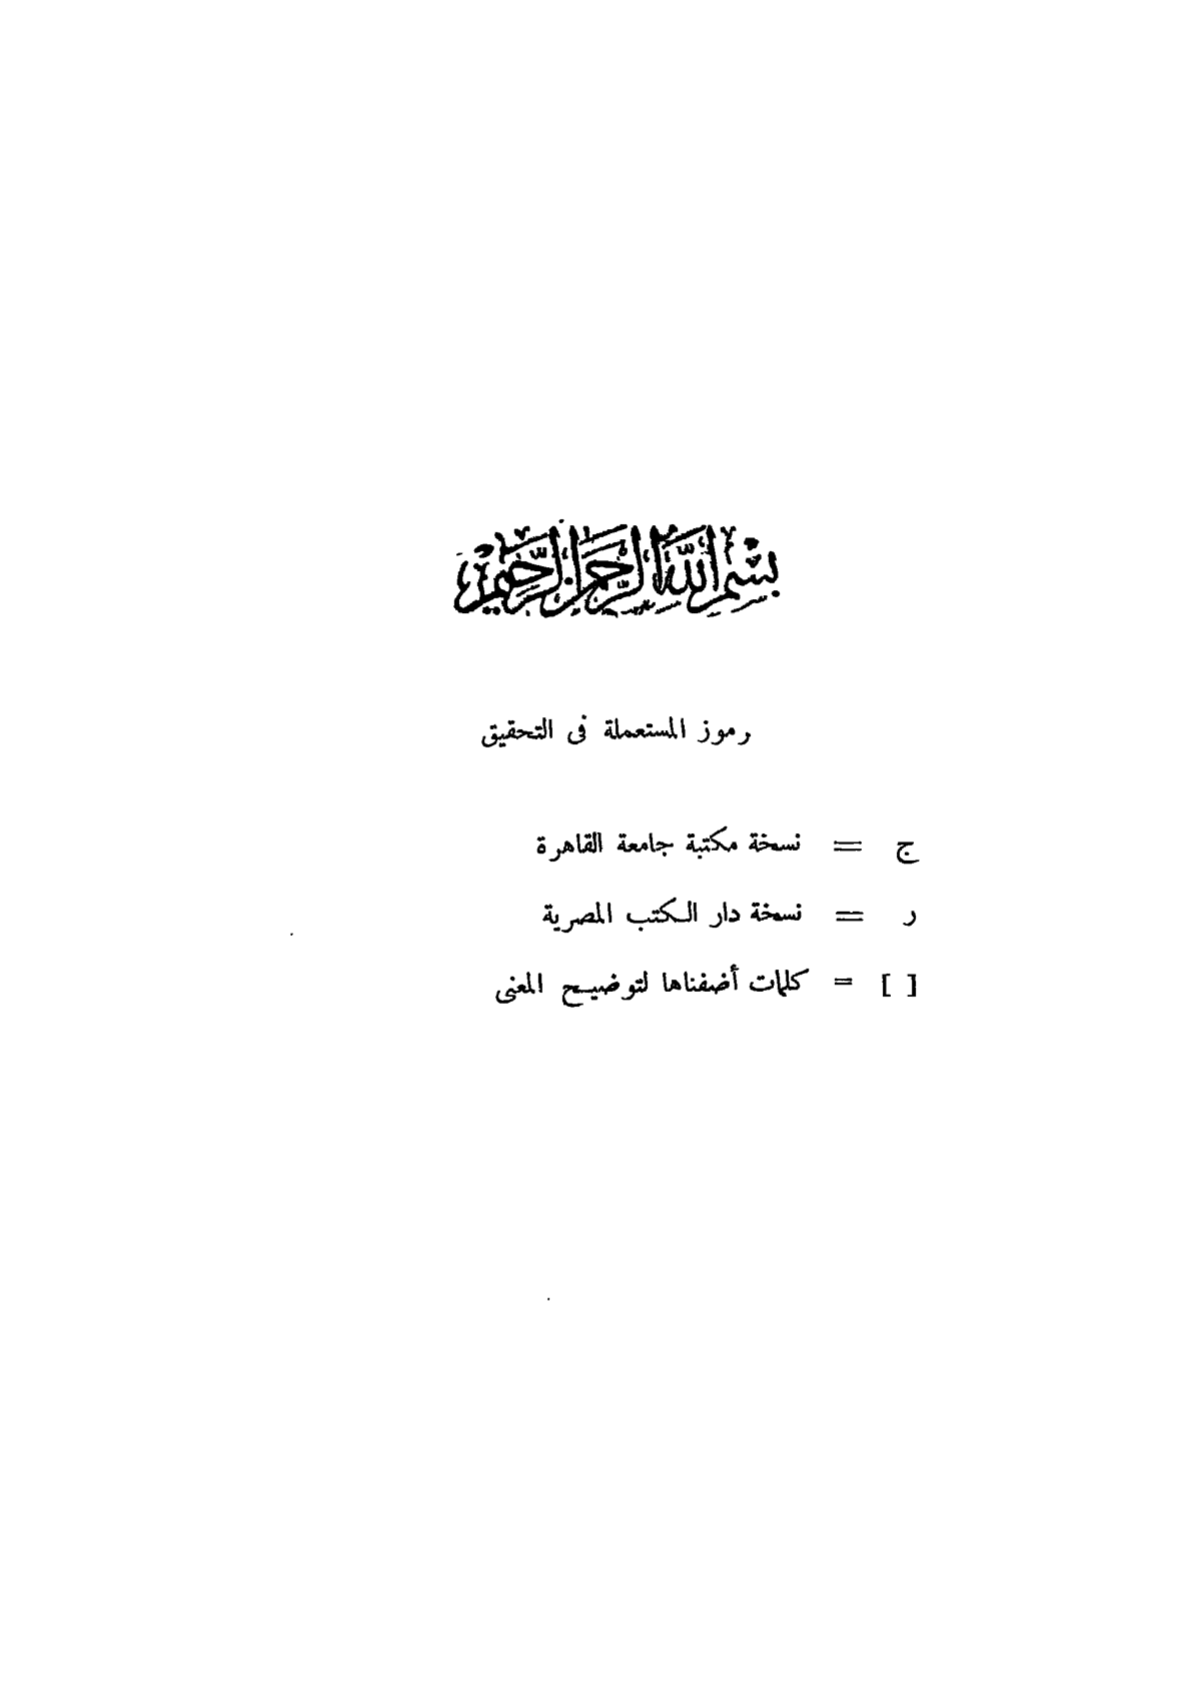 بسم الله الرحمن الرحيم
رموز المستعملة فى التحقيق
ج = نسخة مكتبة جامعة القاهرة
ر = نسخة دار الكتب المصرية
[ ] = كلمات أضفناها لتوضيح المعنى